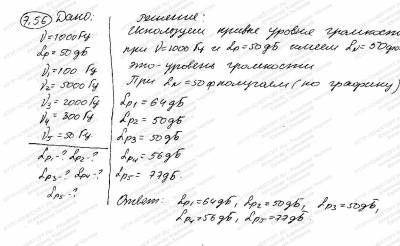 7.56 Дано:
ν=1000Гц
Lp=50дБ
ν₁=100 Гц
ν₂=5000Гц
ν₃=2000Гц
ν₄=300 Гц
ν₅=50Гц
Lp₁-? Lp₂-?
Lp₃-? Lp₄-?
Lp₅-?
Решение:
Используем кривые уровня громкости
при ν=1000Гц и Lp=50дБ имеем LN=50фон
это уровень громкости
При LN=50ф получаем (по графику)
Lp₁=64дБ
Lp₂=50дБ
Lp₃=50дБ
Lp₄=56дБ
Lp₅=77дБ.
Ответ: Lp₁=64дБ, Lp₂=50дБ, Lp₃=50дБ,
Lp₄=56дБ, Lp₅=77дБ.